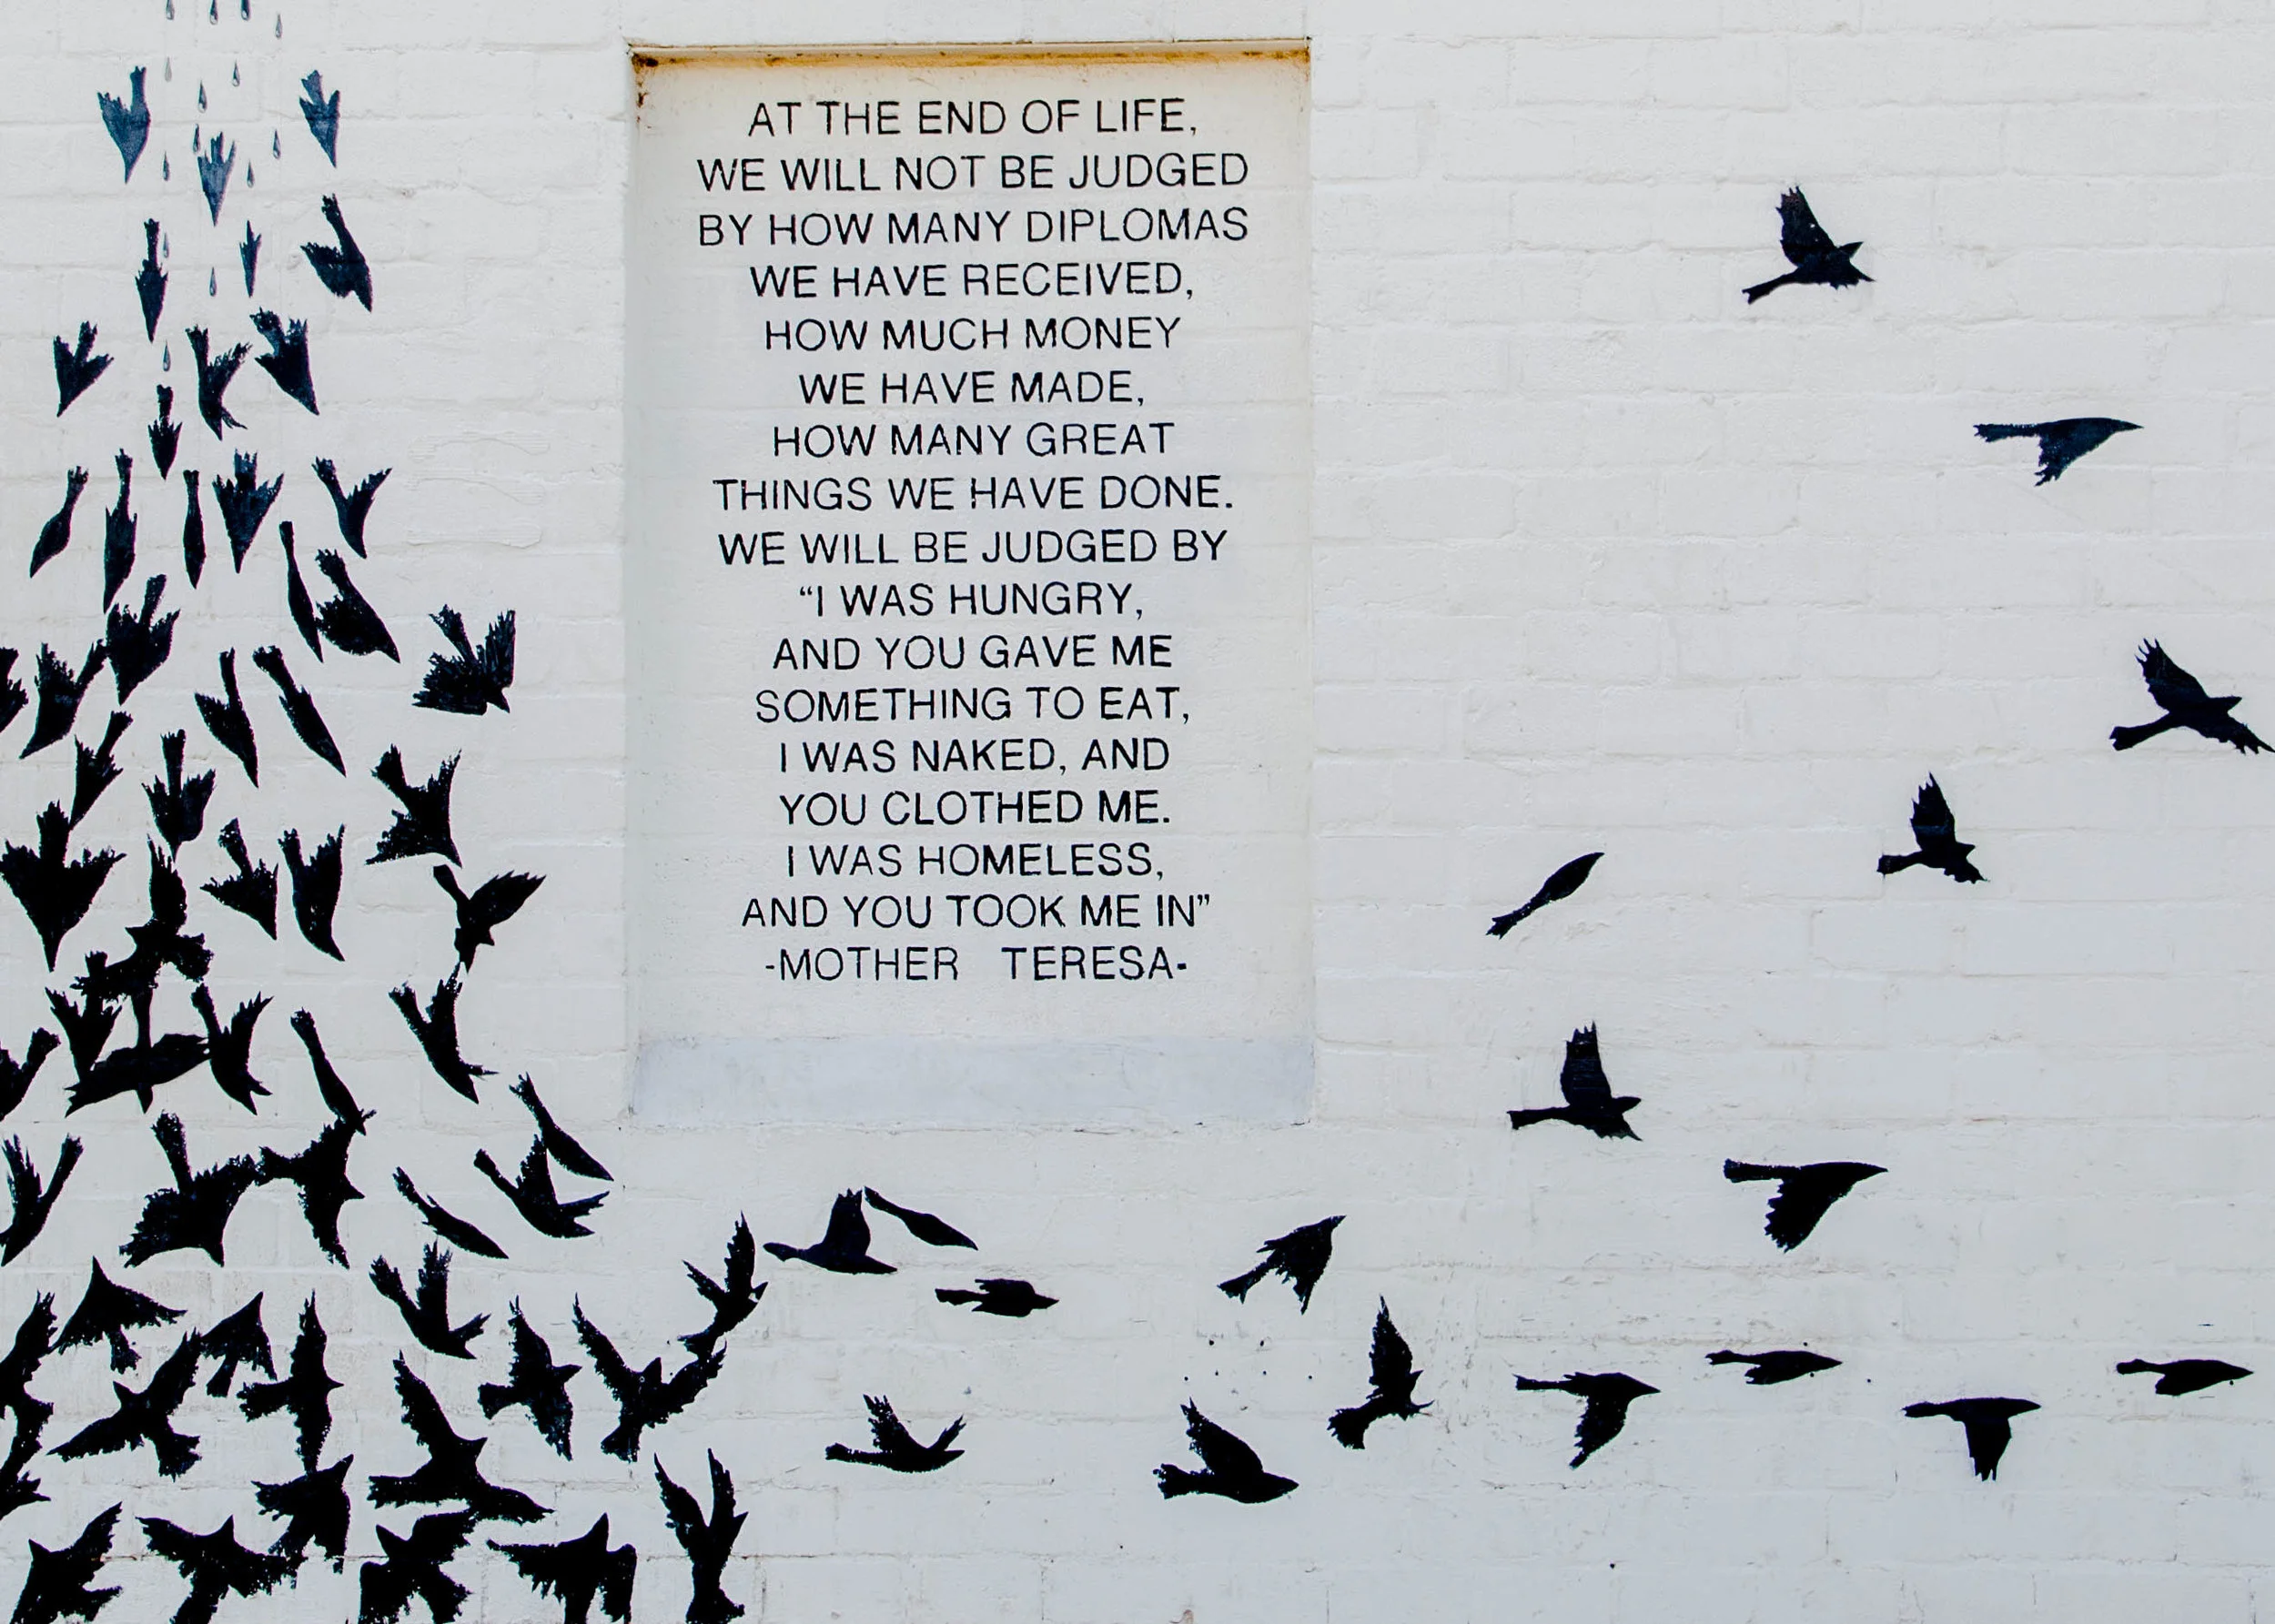 AT THE END OF LIFE,
WE WILL NOT BE JUDGED
BY HOW MANY DIPLOMAS
WE HAVE RECEIVED,
HOW MUCH MONEY
WE HAVE MADE,
HOW MANY GREAT
THINGS WE HAVE DONE.
WE WILL BE JUDGED BY
“I WAS HUNGRY,
AND YOU GAVE ME
SOMETHING TO EAT,
I WAS NAKED, AND
YOU CLOTHED ME.
I WAS HOMELESS,
AND YOU TOOK ME IN”
-MOTHER TERESA-